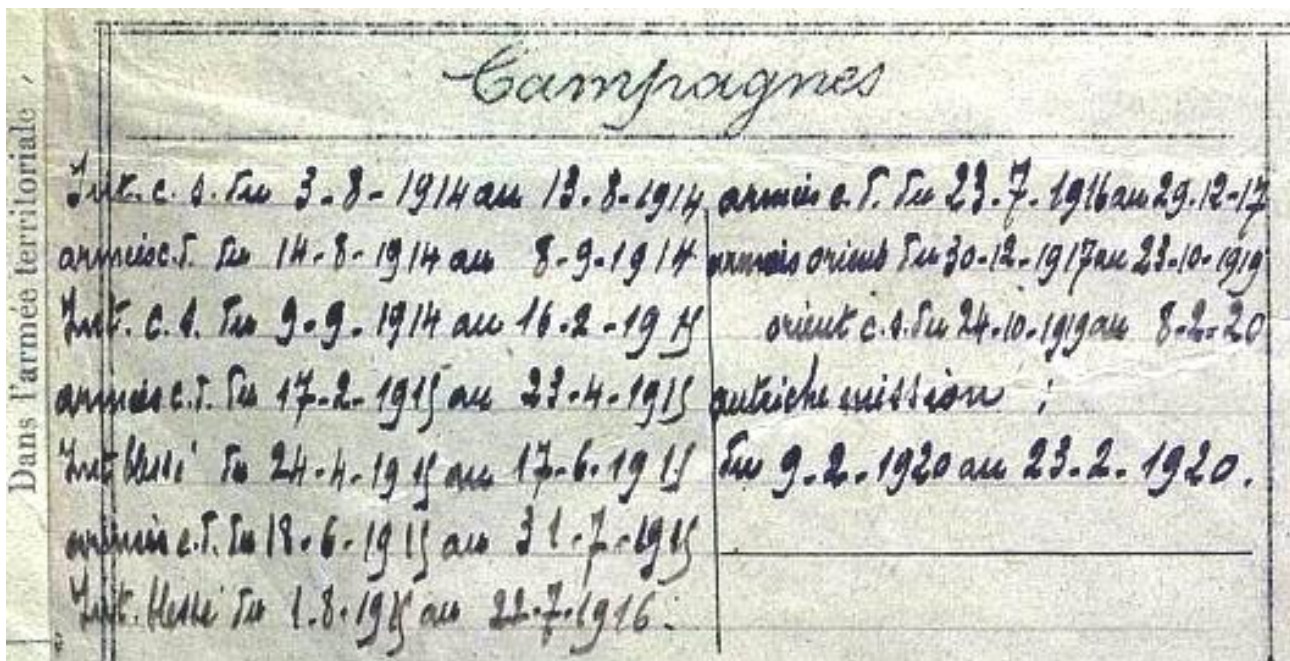 Dans l'armée territoriale
Campagnes
Int. c. s. du 3-8-1914 au 13-8-1914
armées c.d. du 14-8-1914 au 8-9-1914
Int. c. s. du 9-9-1914 au 16-2-1915
armées c.d. du 17-2-1915 au 23-4-1915
Int blessé du 24-4-1915 au 17-6-1915
armées c.d. du 18-6-1915 au 31-7-1915
Int. blessé du 1-8-1915 au 22-7-1916.
armées c.d. du 23-7-1916 au 29-12-17
armées orient du 30-12-1917 au 23-10-1919
orient c.s. du 24-10-1919 au 8-2-20
autriche mission ;
du 9-2-1920 au 23-2-1920.